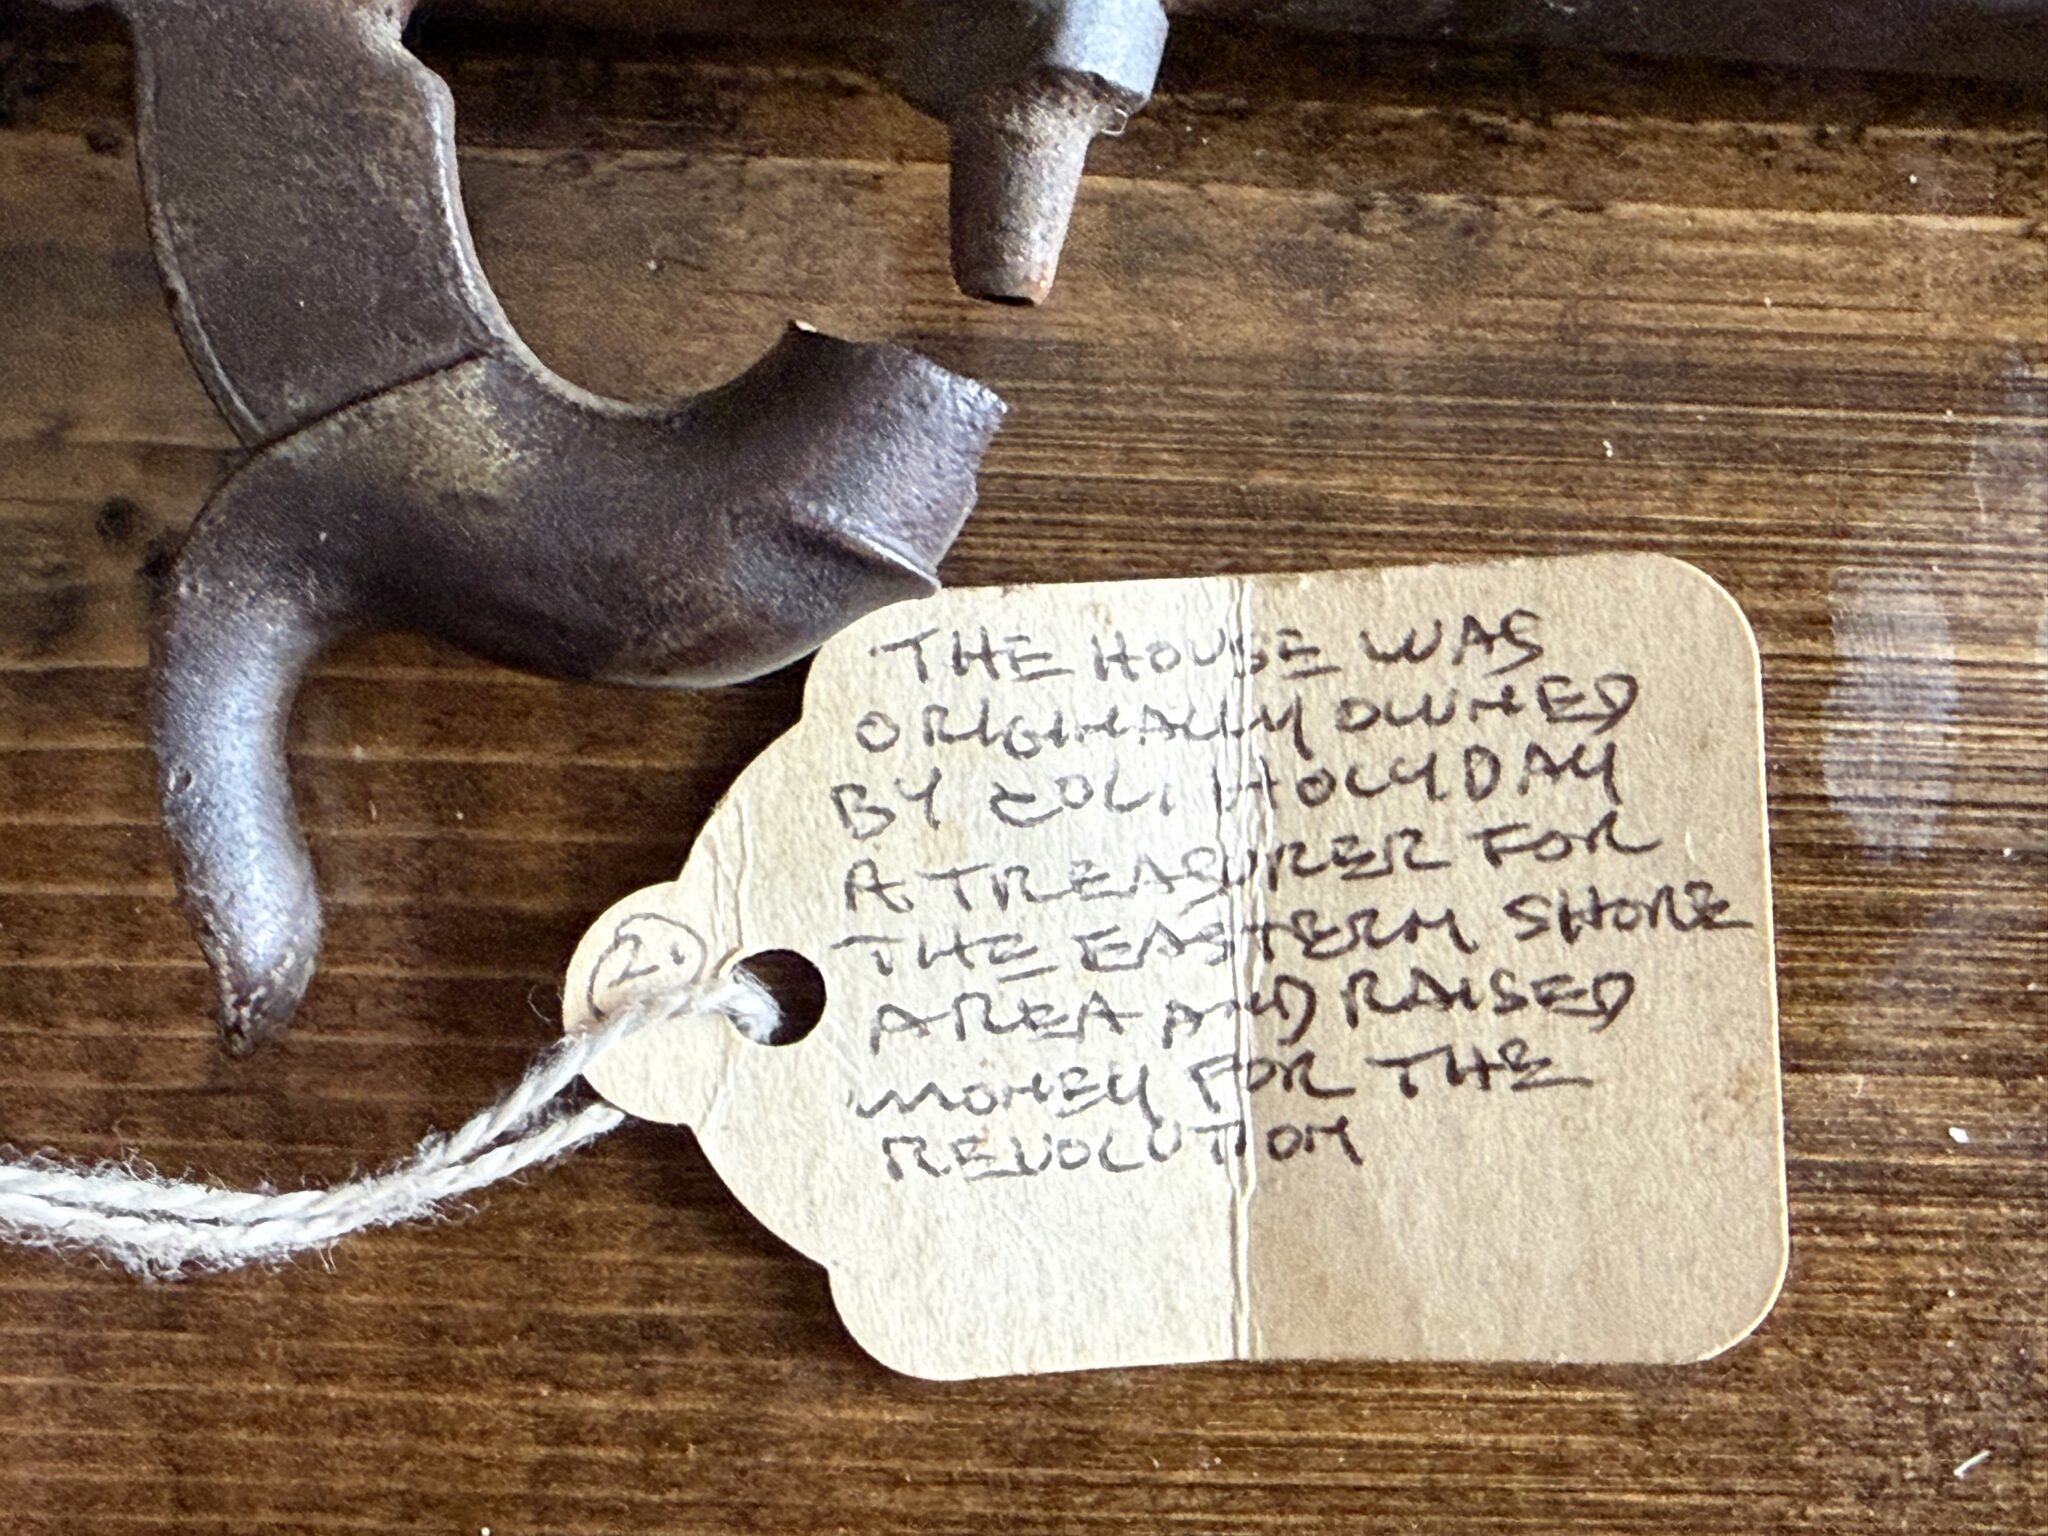 2.
THE HOUSE WAS
ORIGINALLY OWNED
BY COLI HOLYDAY
A TREASURER FOR
THE EASTERN SHORE
AREA AND RAISED
MONEY FOR THE
REVOLUTION